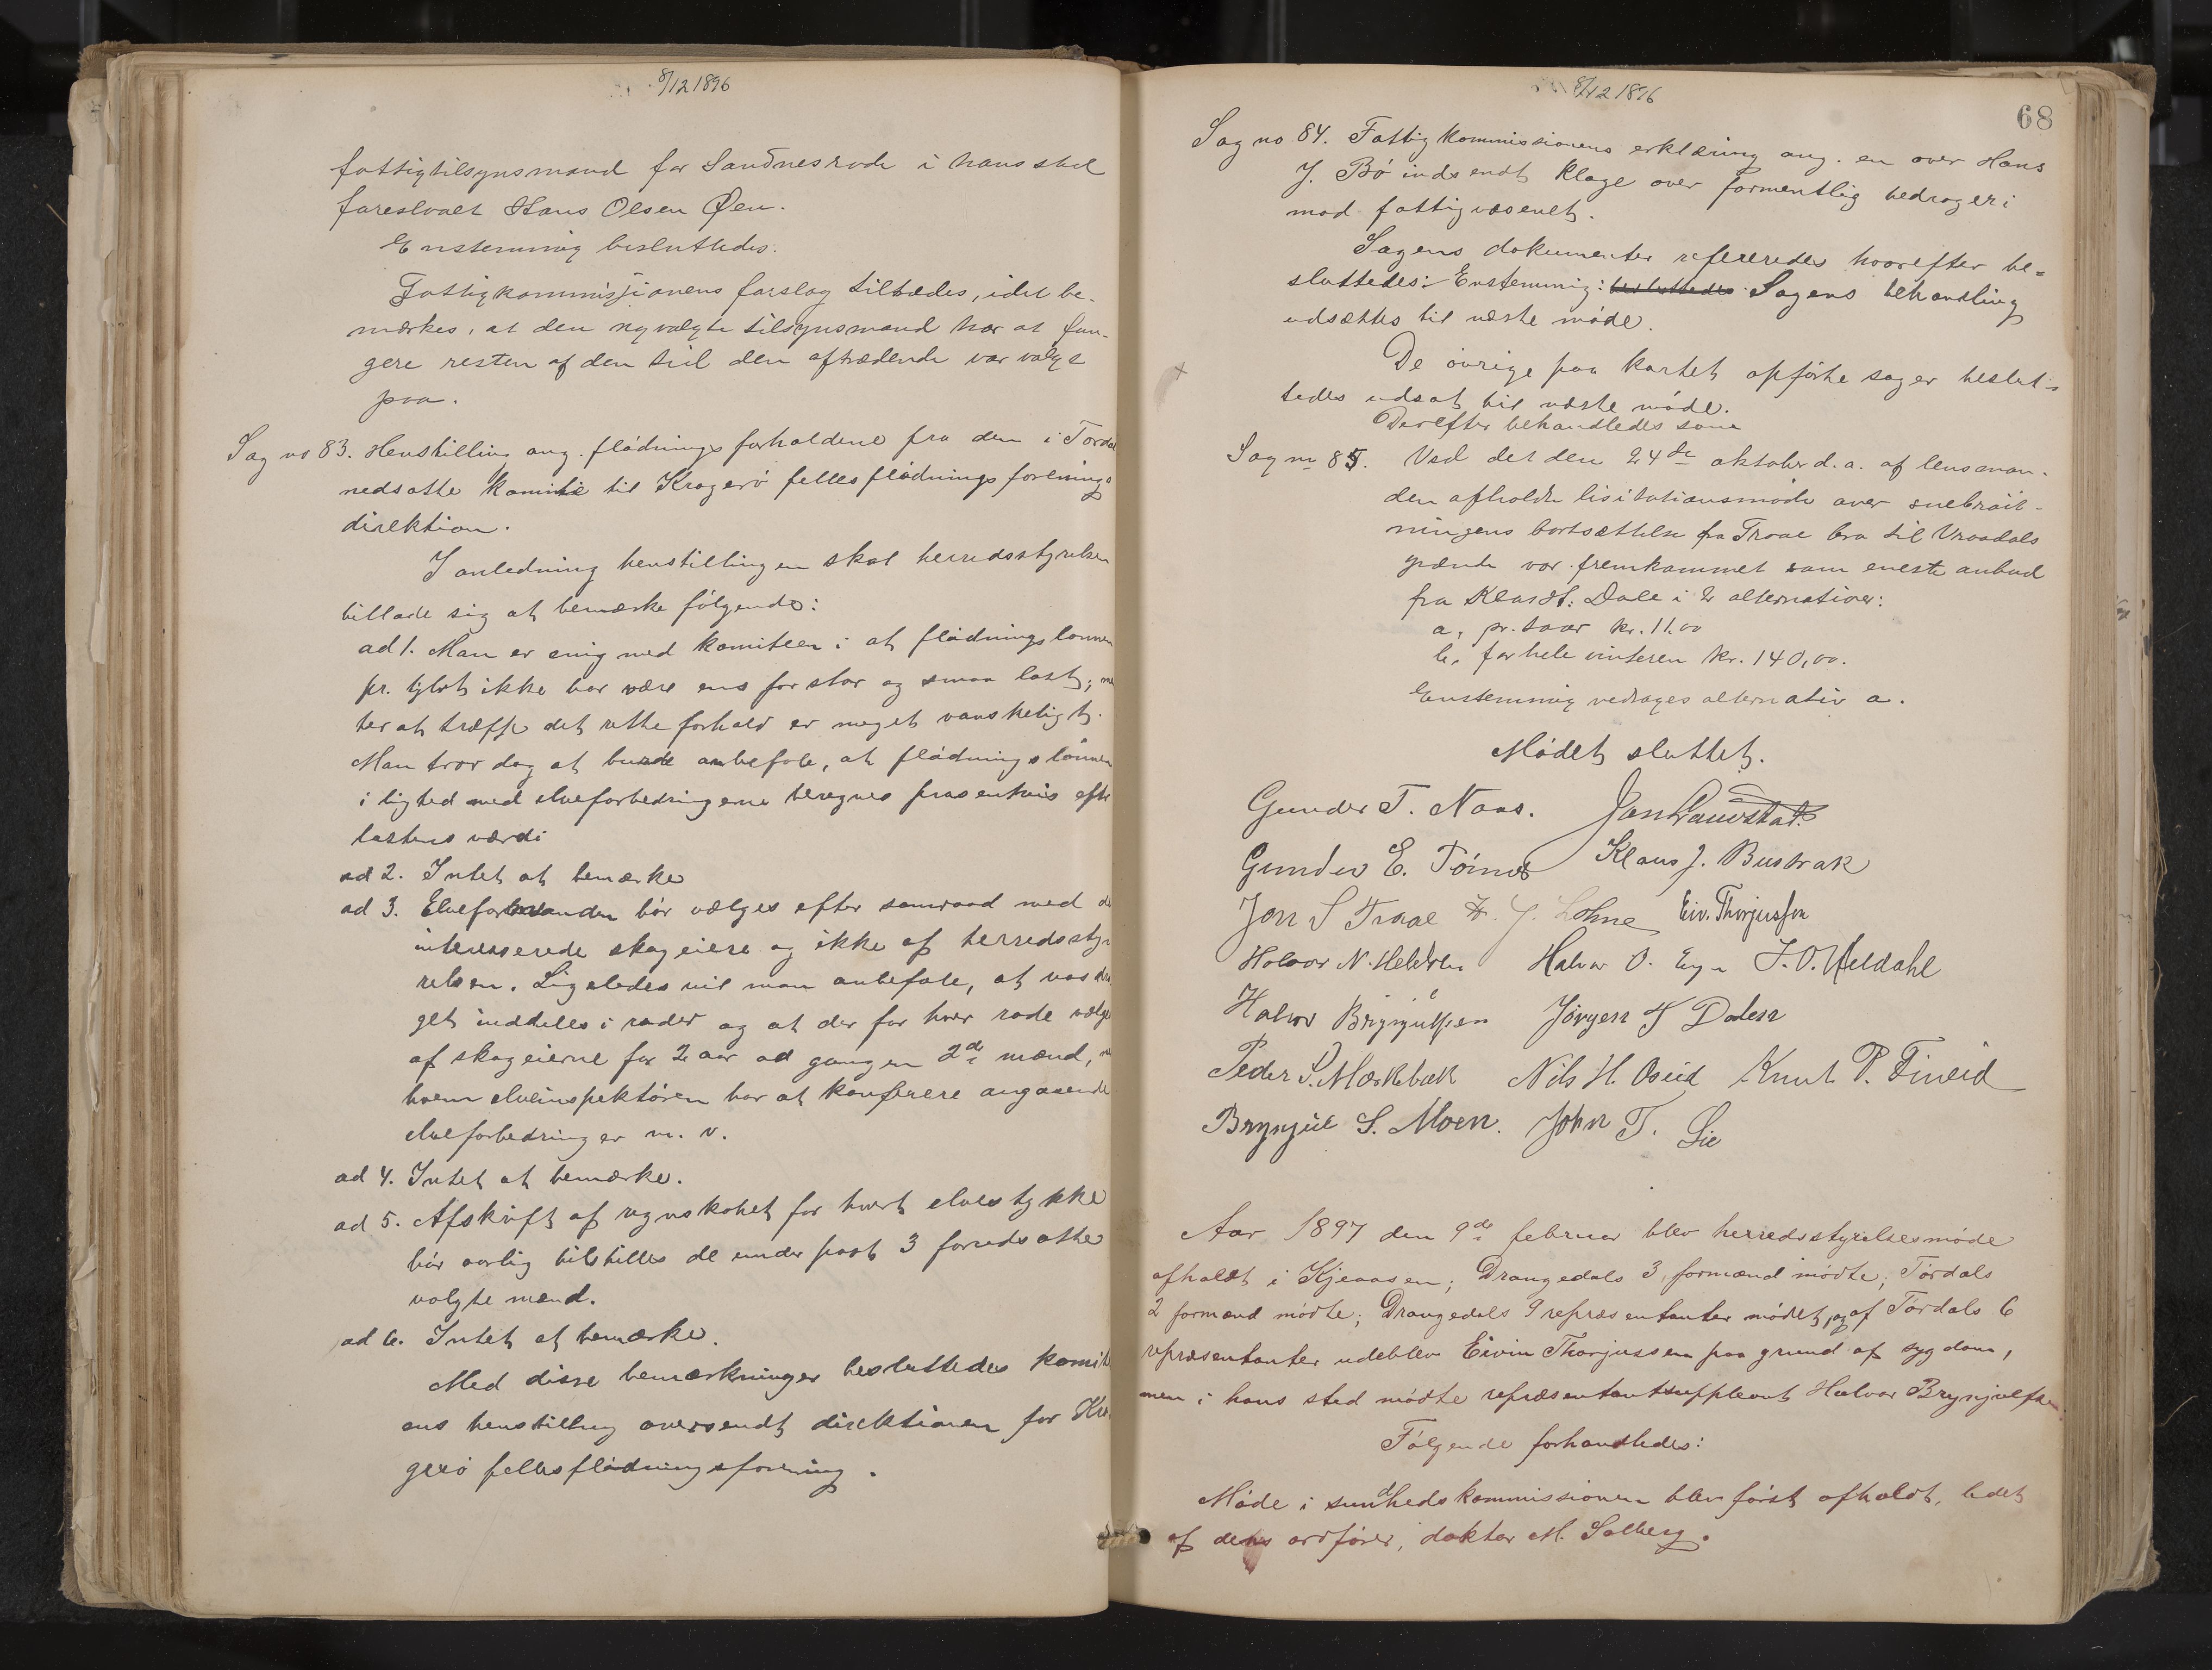 8/12 1896
fattigtilsynsmand for Sandnesrode i hans sted
foreslaaet Hans Olsen Øen.
Enstemmig besluttedes:
Fattigkommissjonens forslag tiltrædes, idet be-
mærkes, at den nyvalgte tilsynsmand har at fun-
gere resten af den tid den aftrædende var valgt
paa.
Sag no 83. Henstilling ang. flødningsforholdene fra den i Tørdal
nedsatte komite til Kragerø fellesflødningsforenings
direktion.
I anledning henstillingen skal herredsstyrelsen
tillade sig at bemærke følgende:
ad 1. Man er enig med komiteen i at flødningslønnen
pr. tylvt ikke bør være ens for stor og smaa last,
ter at træffe det rette forhold er meget vanskeligt.
Man tror dog at burde anbefale, at flødningslønnen
i lighed med elveforbedringerne beregnes prosentvis efter
lastens værdi
ad 2. Intet at bemærke
ad 3. Elveforstanden bør vælges efter samraad med de
interesserede skogeiere og ikke af herredssty-
relsen. Ligeledes vil man anbefale, at vasdra
get inddeles i roder og at der for hver rode vælges
af skogeierne for 2 aar ad gangen 2de mænd,
hvem elveinspektøren har at konferere angaaende
elveforbedringer m. v.
ad 4. Intet at bemærke.
ad 5. Afskrift af regnskabet for hvert elvestykke
bør aarlig tilstilles de under post 3 forudsatte
valgte mænd.
ad 6. Intet at bemærke.
Med disse bemærkninger besluttedes komite
ens henstilling oversendt direktionen for Kra
gerø fellesflødningsforening.
8/12 1896
68
Sag no 84. Fattigkommissionens erklæring ang. en over Hans
J. Bø indsendt klage over formentlig bedrageri
mod fattigvæsenet.
Sagens dokumenter refereredes hvorefter be-
sluttedes: Enstemmig: besluttedes Sagens behandling
udsættes til næste møde.
De øvrige paa kartet opførte sager beslut-
tedes udsat til næste møde.
Derefter behandledes som
Sag no 85. Ved det den 24de oktober d.a. af lensman-
den afholdte lisitationsmøde over snebrøit-
ningens bortsættelse fra Traae bro til Vraadals
grænde var fremkommet som eneste anbud
fra Klas H. Dale i 2 alternativer:
a, pr. tour kr. 11.00
b, for hele vinteren kr. 140,00.
Enstemmig vedtages alternativ a.
Mødet sluttet.
Gunder T. Naas. Jon Gauvstat.
Gunder E. Tørnes Klaus J. Bustrak
Jon S Traae H. J. Lohne Eiv. Thorjussen
Halvor N. Heldren Halvor O. Eign J. O. Heldahl
Halvor Brynjulfsen Jørgen T Dalen
Peder S. Mærkebæk Nils H. Oseid Knut P. Fineid
Brynjul S. Moen. John T. Lie
Aar 1897 den 9de februar blev herredsstyrelsesmøde
afholdt i Kjeaasen; Drangedals 3 formænd mødte; Tørdals
2 formænd mødte; Drangedals 9 repræsentanter mødet, og af Tørdals 6
repræsentanter udeblev Eivin Thorjussen paa grund af sygdom,
men i hans sted mødte repræsentantsuppleant Halvor Brynjulfsen
Følgende forhandledes:
Møde i sundhedskommissionen blev først afholdt, ledet
af dens ordfører, doktor M. Solberg.